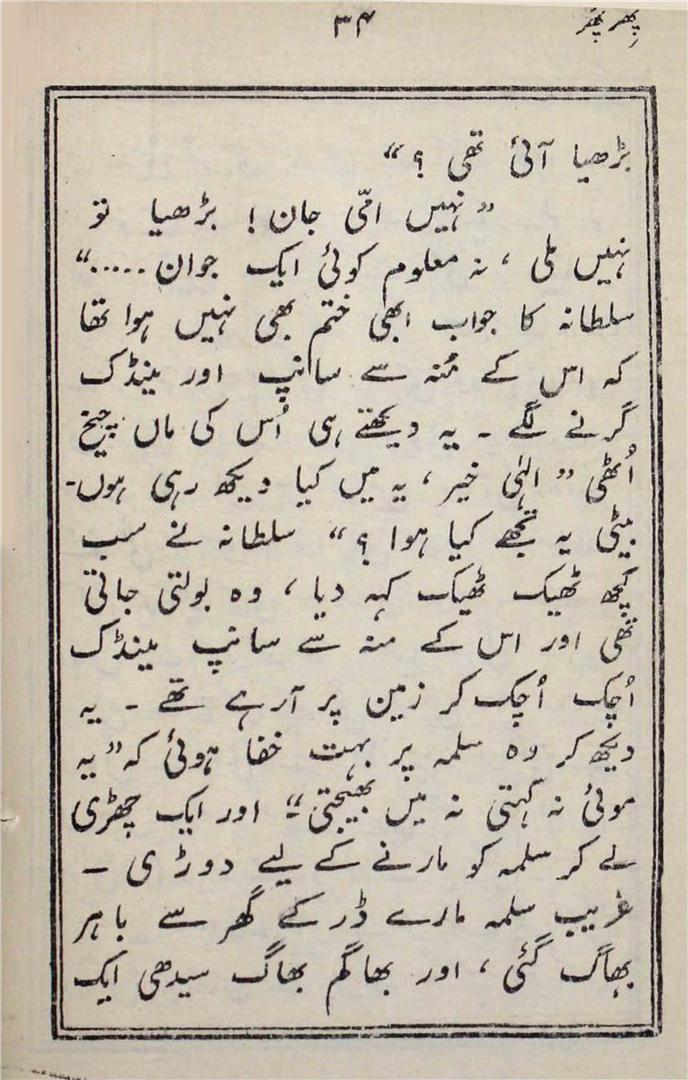 پھر پھر
۳۴
بڑھیا آئی تھی ؟“
”نہیں امّی جان ! بڑھیا تو
نہیں ملی ، نہ معلوم کوئی ایک جوان .....“
سلطانہ کا جواب ابھی ختم بھی نہیں ہوا تھا
کہ اس کے مُنہ سے سانپ اور مینڈک
گرنے لگے ۔ یہ دیکھتے ہی اُس کی ماں چیخ
اُٹھی ” الہٰی خیر ، یہ میں کیا دیکھ رہی ہوں۔
بیٹی یہ تجھے کیا ہوا ؟“ سلطانہ نے سب
کچھ ٹھیک ٹھیک کہہ دیا ، وہ بولتی جاتی
تھی اور اس کے منہ سے سانپ مینڈک
اُچک اُچک کر زمین پر آرہے تھے ۔ یہ
دیکھ کر وہ سلمہ پر بہت خفا ہوئی کہ ”یہ
موئی نہ کہتی نہ میں بھیجتی“۔ اور ایک چھڑی
لے کر سلمہ کو مارنے کے لیے دوڑی ۔
غریب سلمہ مارے ڈر کے گھر سے باہر
بھاگ گئی ، اور بھاگم بھاگ سیدھی ایک